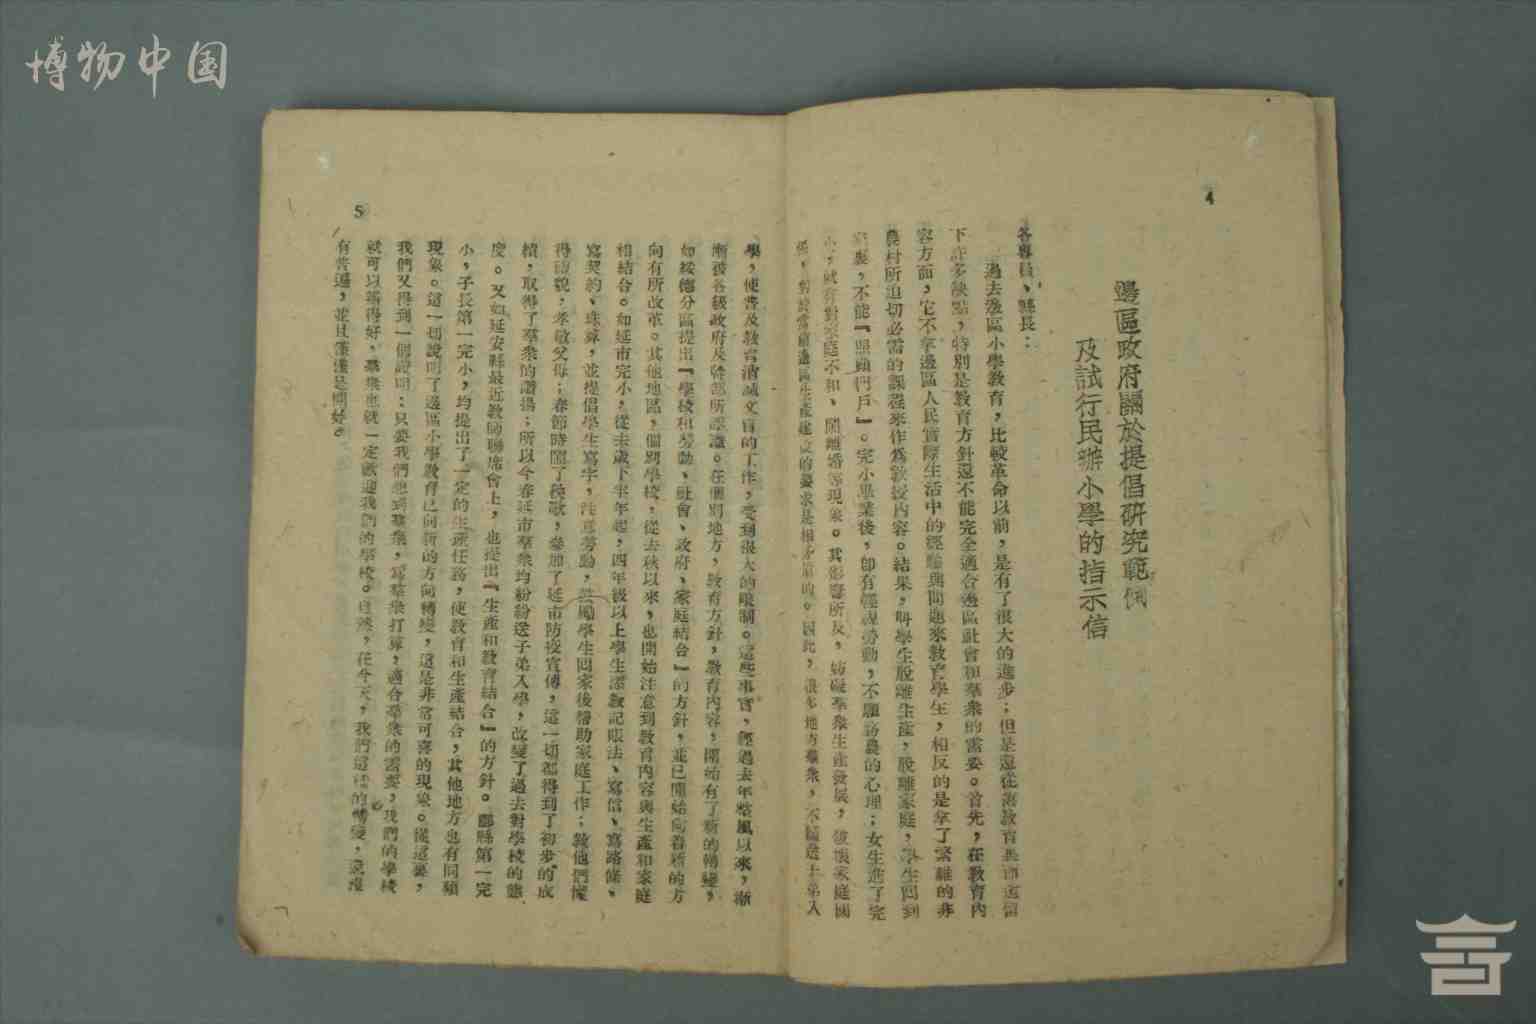 博物中国
4
邊區政府關於提倡研究範例
及試行民辦小學的指示信
各專員、縣長：
過去邊區小學教育，比較革命以前，是有了很大的進步；但是還從舊教育裏面遺留
下許多缺點，特別是教育方針還不能完全適合邊區社會和羣衆的需要。首先，在教育內
容方面，它不拿邊區人民實際生活中的經驗與問題來教育學生，相反的是拿了繁雜的非
農村所迫切必需的課程來作爲教授內容。結果，叫學生脫離生產，脫離家庭，學生回到
家裏，不能『照顧門戶』。完小畢業後，卽有輕視勞動，不願務農的心理；女生進了完
小，就有對家庭不和、鬧離婚等現象。其影響所及，妨礙羣衆生產發展，破壞家庭團
係，對於當前邊區生產建設的要求是相矛盾的。因此，很多地方羣衆，不願送子弟入
5
學，使普及教育消滅文盲的工作，受到很大的限制。這些事實，經過去年整風以來，漸
漸被各級政府及幹部所認識。在個別地方，教育方針，教育內容，開始有了新的轉變，
如綏德分區提出『學校和勞動、社會、政府、家庭結合』的方針，並已開始向着新的方
向有所改革。其他地區，個別學校，從去秋以來，也開始注意到教育內容與生產和家庭
相結合。如延市完小，從去歲下半年起，四年級以上學生添教記賬法、寫信、寫路條、
寫契約、珠算，並提倡學生寫字，注意勞動，鼓勵學生回家後幫助家庭工作；教他們懂
得禮貌，孝敬父母；春節時鬧了秧歌，參加了延市防疫宣傳，這一切都得到了初步的成
績，取得了羣衆的讚揚；所以今春延市羣衆均紛紛送子弟入學，改變了過去對學校的態
度。又如延安縣最近教師聯席會上，也提出『生產和教育結合』的方針。鄜縣第一完
小，子長第一完小，均提出了一定的生產任務，使教育和生產結合，其他地方也有同類
現象。這一切說明了邊區小學教育已向新的方向轉變，這是非常可喜的現象。從這裏，
我們又得到一個證明：只要我們想到羣衆，爲羣衆打算，適合羣衆的需要，我們的學校
就可以辦得好，羣衆也就一定歡迎我們的學校。自然，在今天，我們這樣的轉變，還沒
有普遍，並且僅僅是開始。